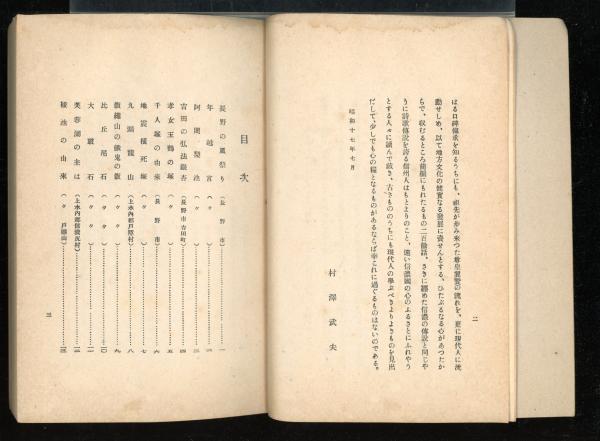 はる口碑傳承を知るうちにも、祖先が歩み來つた尊皇翼贊の流れを、更に現代人に波
動せしめ、以て地方文化の健實なる發展に資せんとする、ひたぶるなる心があつたか
らで、收むるところ前編にもれたるもの二百餘話、さきに纏めた信濃の傳説と同じや
うに詩歌傳説を誇る信州人はもとよりのこと、遠い信濃國の心のふるさとにふれやう
とする人々に讀んで戴き、古きもののうちにも現代人の學ぶべきよりよきものを見出
だして、少しでも心の糧となるものがあるならば幸これに過ぐるものはないのである。
昭和十七年七月
村澤武夫
二
目次
長野の風祭り(長野市)…一
年越宮(〃)
阿闍梨池(〃)
吉田の弘法銀杏(長野市吉田町)…四
孝女玉鶴の塚(〃)…五
千人塚の由來(長野市)…六
地震橫死塚(〃)…七
九頭龍山(上水內郡戶隱村)…八
飯繩山の餓鬼の飯(〃〃)…九
比丘尼石(〃〃)…一〇
大眼石(〃〃)
芙蓉湖の主は(上水內郡信濃尻村)
種池の由來(〃戶隱山)
三